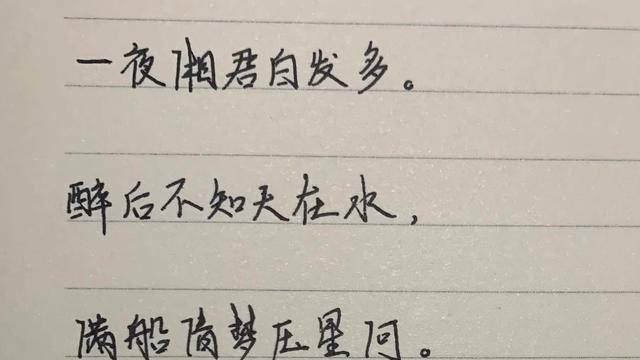 一夜湘君白发多。
醉后不知天在水，
满船清梦压星河。